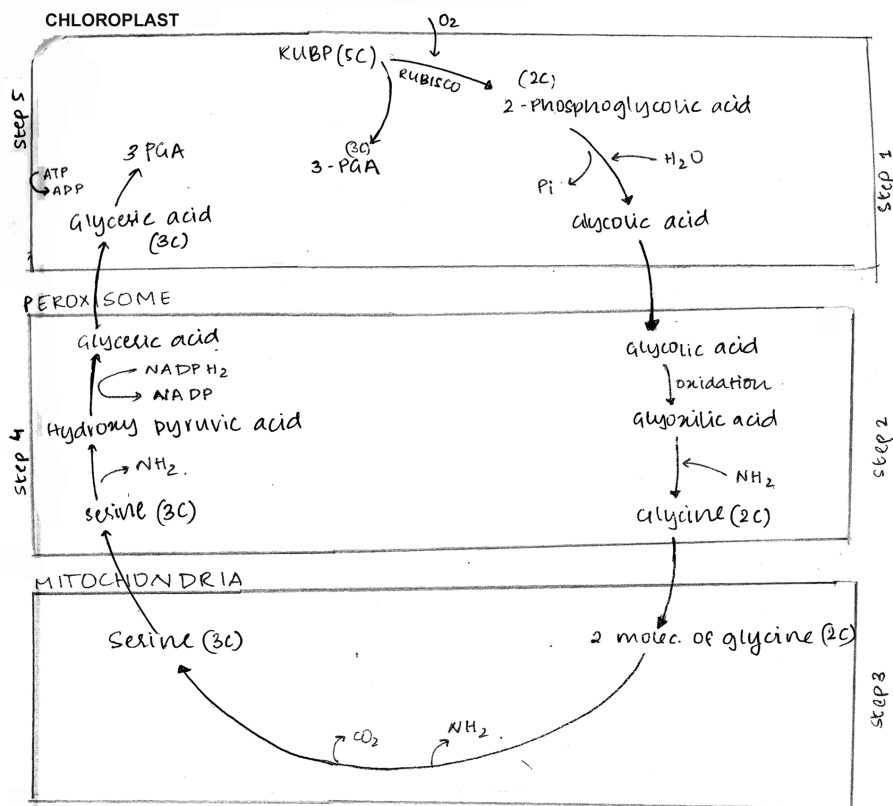 CHLOROPLAST
O2
RUBP (5C)
RUBISCO
(2C)
2-Phosphoglycolic acid
(3C)
3-PGA
H2O
Pi
Glycolic acid
Step 1
Step 5
3 PGA
ATP
ADP
Glyceric acid
(3C)
PEROXISOME
Glyceric acid
NADPH2
NADP
Hydroxy pyruvic acid
NH2.
Serine (3C)
Step 4
Glycolic acid
oxidation
Glyoxilic acid
NH2
Glycine (2C)
Step 2
MITOCHONDRIA
Serine (3C)
2 molec. of glycine (2C)
CO2
NH2.
Step 3